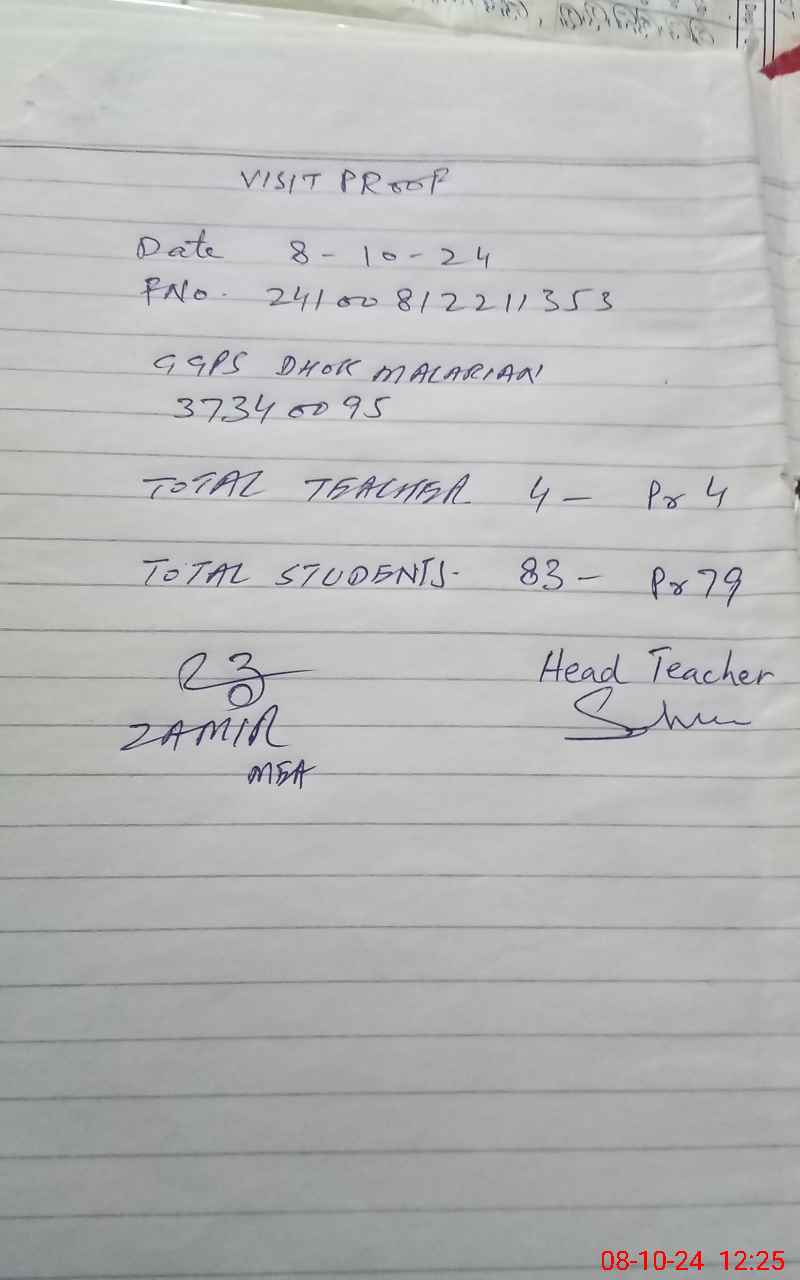 VISIT PROOF
Date 8-10-24
FNo. 24100812211353
GGPS DHOK MALARIAN
37340095
TOTAL TEACHER 4 - Pr 4
TOTAL STUDENTS- 83 - Pr 79
Head Teacher
ZAMIR
MEA
08-10-24 12:25